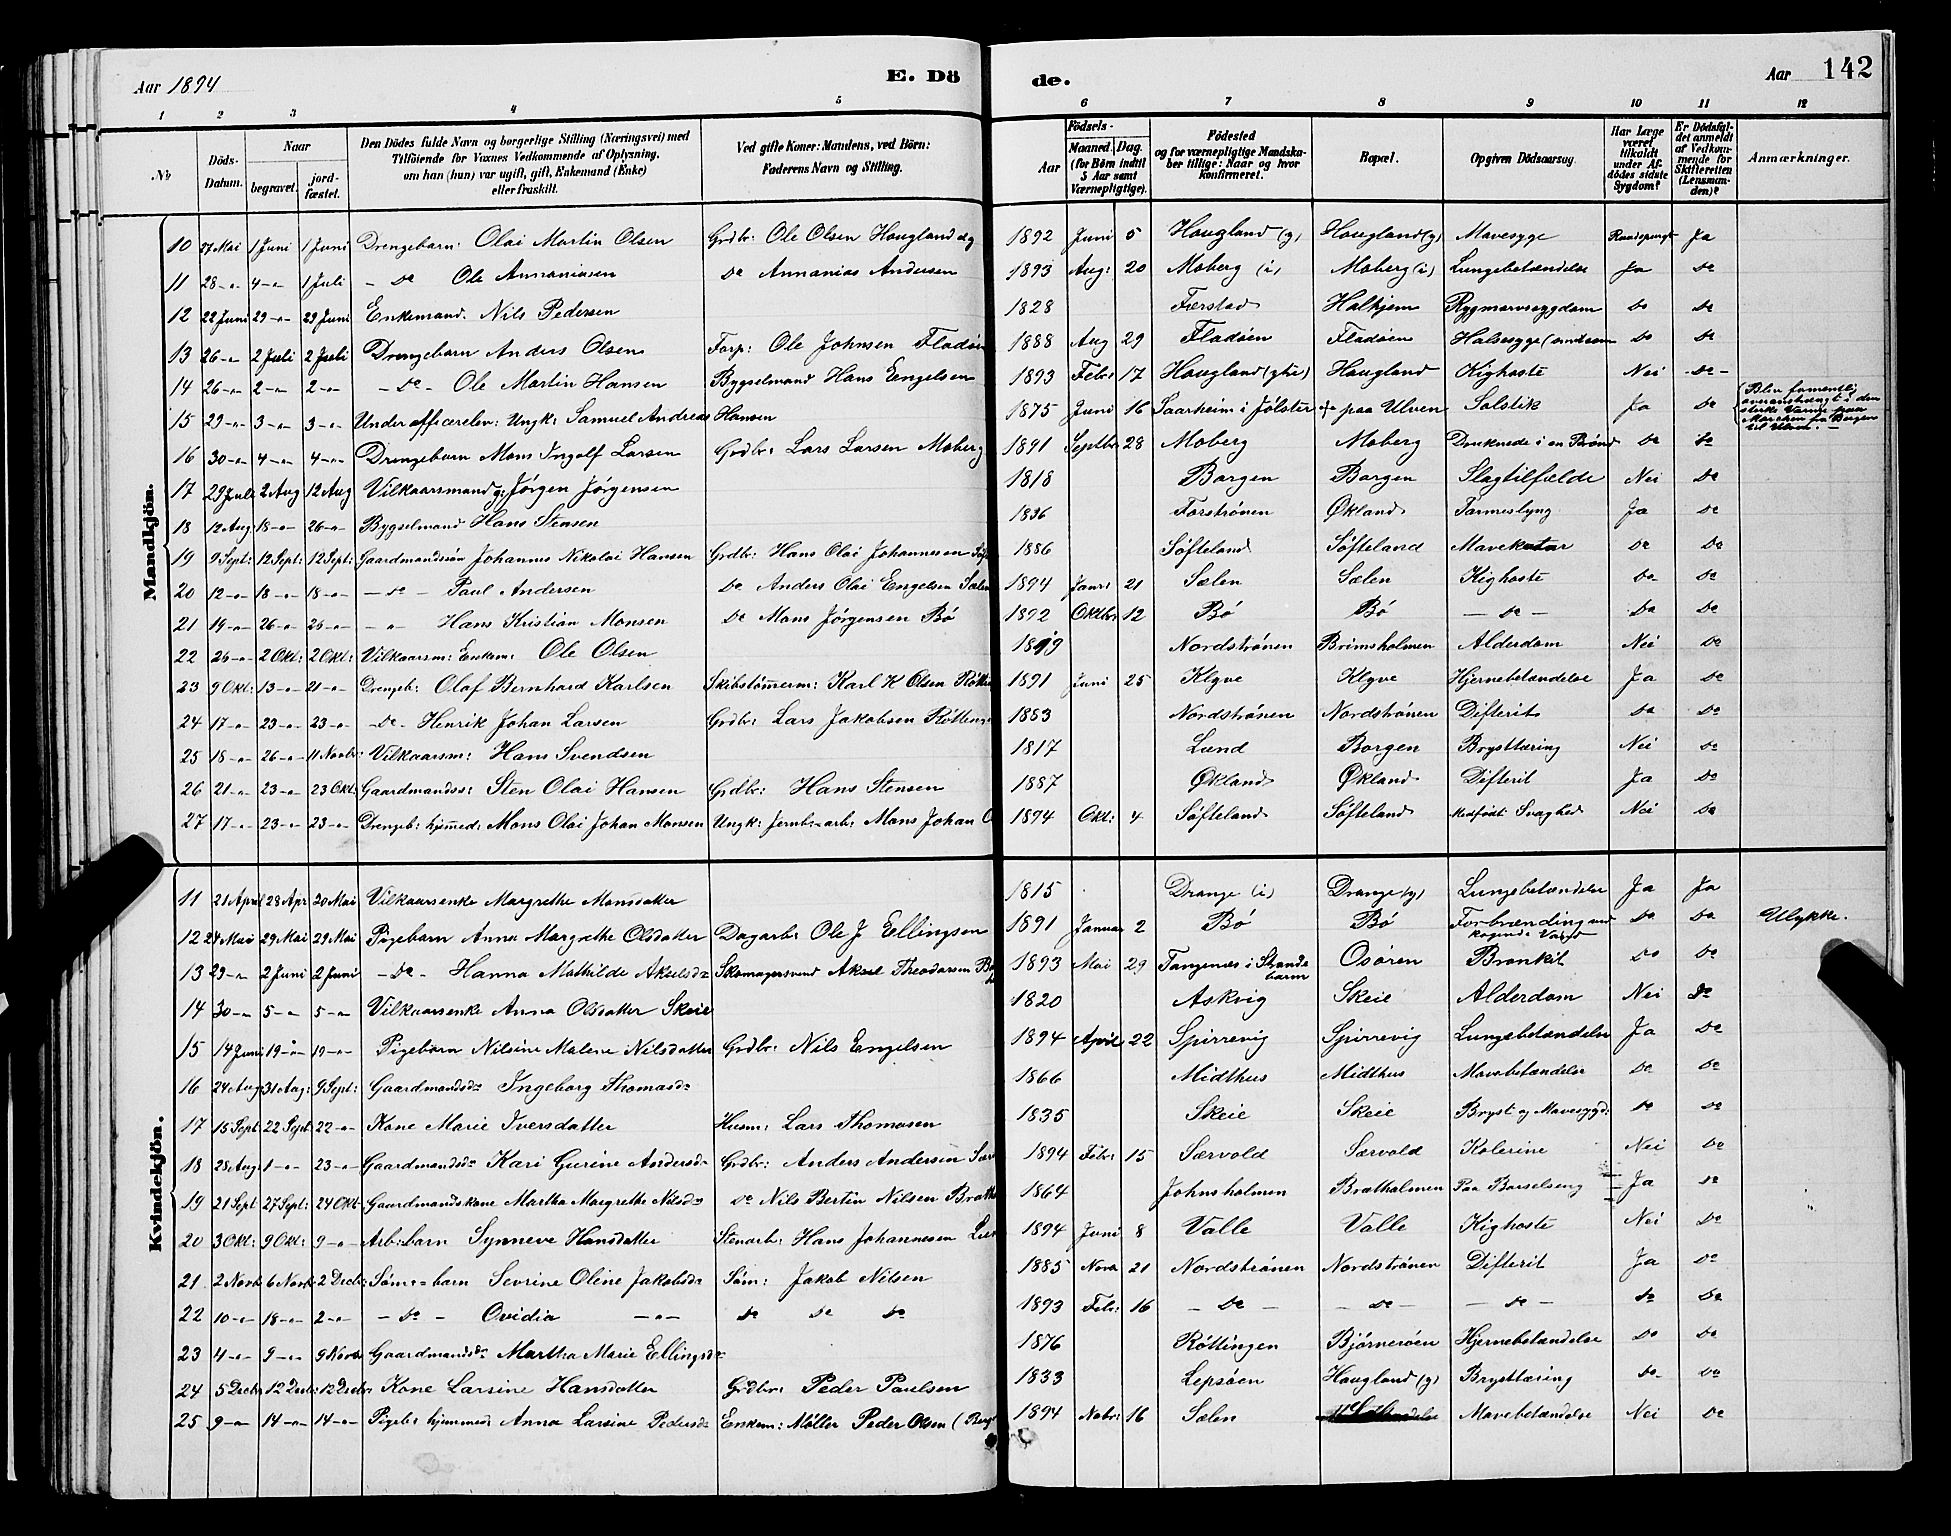 Aar 1894 E. Dö de. Aar 142
1 2 3 4 5 6 7 8 9 10 11 12
No Döds-Datum. Naar begravet. jord-fæstet. Den Dödes fulde Navn og borgerlige Stilling (Næringsvei) med Tilföiende for Voxnes Vedkommende af Oplysning, om han (hun) var ugift, gift, Enkemand (Enke) eller fraskilt. Ved gifte Koner: Mandens, ved Börn: Faderens Navn og Stilling. Födsels- Aar Maaned. Dag. (for Börn indtil 5 Aar samt Værnepligtige). Födested og for værnepligtige Mandskaber tillige: Naar og hvor konfirmeret. Bopæl. Opgiven Dödsaarsag. Har Læge været tilkaldt under Afdödes sidste Sygdom? Er Dödsfaldet anmeldt af Vedkommende for Skifteretten (Lensmanden)? Anmærkninger.
Mandkjön.
10 27 Mai 1 Juni 1 Juni Drengebarn: Olai Martin Olsen Grdbr: Ole Olsen Hougland 1892 Juni 5 Hougland (y) Hougland (y) Mavesyge Raadspurgt Ja
11 28-"- 4-"- 1 Juli - Do Ole Annaniasen Do Annanias Andersen 1893 Aug: 20 Moberg (i) Moberg (i) Lungebetændelse Ja Do
12 22 Juni 29-"- 29 Juni Enkemand. Nils Pedersen 1828 Færstad Halhjem Rygmarvssygdom Do Do
13 26-"- 2 Juli 2 Juli Drengebarn Anders Olsen Forp: Ole Johnsen Fladøen 1888 Aug 29 Fladøen Fladøen Halssyge Do Do
14 26-"- 2-"- 2-"- - Do - Ole Martin Hansen Bygselmand Hans Engelsen 1893 Febr: 17 Hougland Hougland Kighoste Nei Do -
15 29-"- 3-"- 3-"- Underofficerelev: Ungk: Samuel Andreas Hansen 1875 Juni 16 Paarheim i Jølster paa Ulven Solstik Ja Do Blev overanstrængt i den sterke Varme paa Marchen fra Bergen til Ulven.
16 30-"- 4-"- 4-"- Drengebarn Mons Ingolf Larsen Grdbr: Lars Larsen Moberg 1891 Septbr 28 Moberg Moberg Druknede i en Brønd Do Do
17 29 Juli 2 Aug 12 Aug Vilkaarsmand g: Jørgen Jørgensen 1818 Borgen Borgen Slagtilfælde Nei Do
18 12 Aug 18-"- 26-"- Bygselmand Hans Stensen 1836 Forstrønen Økland Tarmeslyng Ja Do
19 9 Sept: 12 Sept: 12 Sept: Gaardmandssøn Johannes Nikolai Hansen Grdbr: Hans Olai Johannessen 1886 Søfteland Søfteland Mavekatar Do Do
20 12-"- 18-"- 18-"- - Do - Paul Andersen Do Anders Olai Engelsen Sælen 1894 Janr: 21 Sælen Sælen Kighoste Do Do
21 19-"- 26-"- 26-"- - " - Hans Kristian Monsen Do Mons Jørgensen Bø 1892 Oktbr: 12 Bø Bø - Do - Do Do
22 26-"- 2 Okt: 2 Okt: Vilkaarsm: Enkem: Ole Olsen 1819 Nordstrønen Brimsholmen Alderdom Nei Do
23 9 Okt: 13-"- 21-"- Drengeb: Olaf Bernhard Karlsen Skibstømerm: Karl K Olsen 1891 Juni 25 Klyve Klyve Hjernebetændelse Ja Do
24 17-"- 23-"- 23-"- - Do - Henrik Johan Larsen Grdbr: Lars Jakobsen Røttingen 1883 Nordstrønen Nordstrønen Difterit Do Do
25 18-"- 26-"- 11 Novbr: Vilkaarsm: Hans Svendsen 1817 Lund Borgen Brysttæring Nei Do
26 21-"- 23-"- 23 Okt Gaardmandss: Sten Olai Hansen Grdbr: Hans Stensen 1887 Økland Økland Difterit Ja Do
27 17-"- 23-"- 23-"- Drengeb: hjemmed: Mons Olai Johan Monsen Ungk: Jernb:arb: Mons Johan 1894 Okt: 4 Søfteland Søfteland Medfødt Svaghed Nei Do
Kvindekjön.
11 21 April 28 Apr 20 Mai Vilkaarsenke Margrethe Monsdatter 1815 Drange (i) Drange (y) Lungebetændelse Ja Ja
12 24 Mai 29 Mai 29 Mai Pigebarn Anna Margrethe Olsdatter Dagarb: Ole J Ellingsen 1891 Januar 2 Bø Bø Forbrænding ved kogende Vand Do Do Ulykke.
13 29-"- 2 Juni 2 Juni - Do - Hanna Mathilde Akselsdr Skomagersvend Aksel Theodorsen 1893 Mai 29 Tangenes i Strandebarm Osøren Bronkit Do Do
14 30-"- 5-"- 5-"- Vilkaarsenke Anna Olsdatter Skeie 1820 Askvig Skeie Alderdom Nei Do
15 14 Juni 19-"- 19-"- Pigebarn Nilsine Malene Nilsdatter Grdbr: Nils Engelsen 1894 April 22 Spirrevig Spirrevig Lungebetændelse Ja Do
16 24 Aug 31 Aug: 9 Sept: Gaardmandsdr Ingeborg Thomasdr 1866 Midthus Midthus Mavebetændelse Do Do
17 18 Sept 22 Sept 22-"- Kone Marie Iversdatter Husm: Lars Thomasen 1835 Skeie Skeie Bryst og Mavesygd: Do Do
18 28 Aug 1-"- 23-"- Gaardmandsdr Kari Gurine Andersdr Grdbr: Anders Andersen 1894 Febr: 15 Særvold Særvold Kolerine Nei Do
19 21 Sept 27 Sept: 24 Okt. Gaardmandskone Martha Margrethe Nilsdr Do Nils Bertin Nilsen 1864 Johnsholmen Bratholmen Paa Barselseng Ja Do
20 3 Okt: 9 Okt: 9-"- Arb:barn Synneve Hansdatter Stenarb: Hans Johannesen 1894 Juni 8 Valle Valle Kighoste Nei Do
21 2 Novb 6 Novb: 2 Decb: Søm:-barn Sevrine Oline Jakobsdr Søm: Jakob Nilsen 1885 Novr 21 Nordstrønen Nordstrønen Difterit Ja Do
22 10-"- 18-"- 2-"- - Do - Ovidia -"- Do Do Do 1893 Febr: 16 - Do - - Do - - Do - Do Do
23 4-"- 9-"- 9 Novbr Gaardmandsdr Martha Marie Ellingsdr 1876 Røttingen Bjørnerøen Hjernebetændelse Do Do
24 5 Decb 12 Decb: 12 Decbr: Kone Larsine Hansdatter Grdbr: Peder Paulsen 1833 Lepsøen Hougland (y) Brysttæring Do Do
25 9-"- 14-"- 14-"- Pigeb: hjemmed Anna Larsine Pedersdr Enkem: Møller Peder Olsen 1894 Nobr: 16 Sælen Mavebetændelse Nei Do